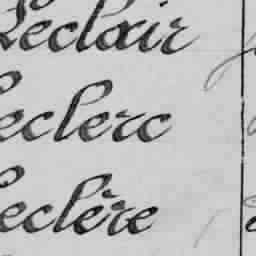 Leclair
Leclerc
Leclère